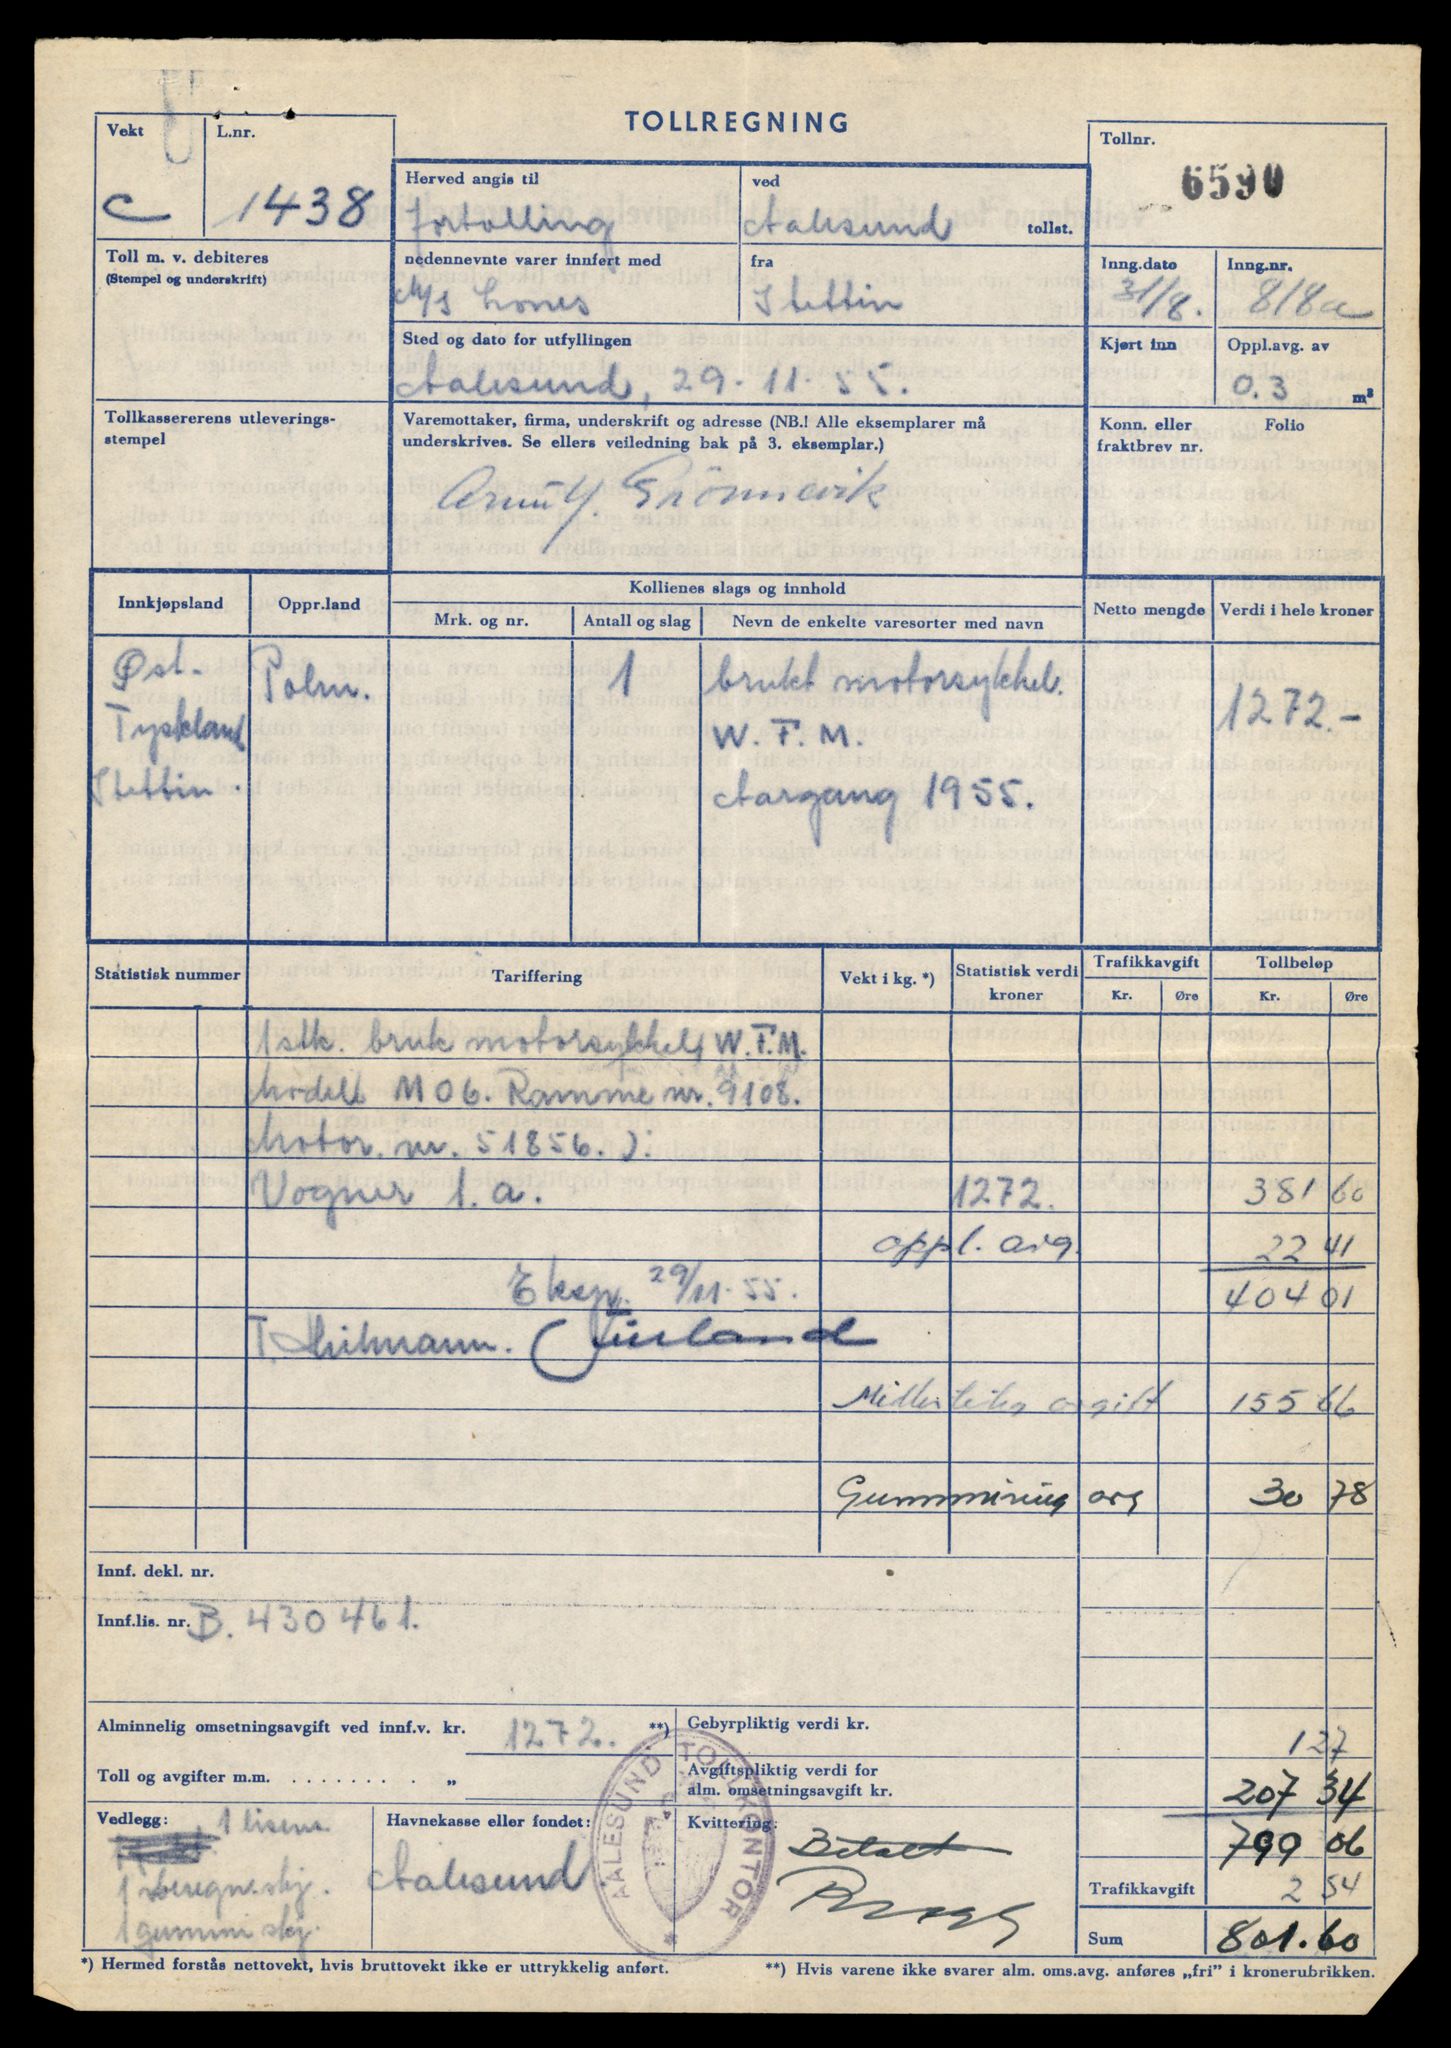 TOLLREGNING
Vekt
L.nr.
Tollnr.
C
1438
6590
Herved angis til
ved
fortolling
Aalesund
tollst.
Toll m. v. debiteres
(Stempel og underskrift)
nedennevnte varer innført med
fra
Inng.dato
Inng.nr.
M/S
Stettin
31/8.
818a
Sted og dato for utfyllingen
Kjørt inn
Oppl.avg. av
Aalesund, 29.11.55.
0.3
m³
Tollkassererens utleverings-
stempel
Varemottaker, firma, underskrift og adresse (NB.! Alle eksemplarer må
underskrives. Se ellers veiledning bak på 3. eksemplar.)
Konn. eller
fraktbrev nr.
Folio
Grönnevik
Innkjøpsland
Oppr.land
Kollienes slags og innhold
Netto mengde
Verdi i hele kroner
Mrk. og nr.
Antall og slag
Nevn de enkelte varesorter med navn
Øst.
Polen.
1
brukt motorsykkel.
1272 –
Tyskland
W. F. M.
Stettin
Aargang 1955.
Statistisk nummer
Tariffering
Vekt i kg. *)
Statistisk verdi
kroner
Trafikkavgift
Tollbeløp
Kr.
Øre
Kr.
Øre
1 stk. bruk motorsykkel W.F.M.
Modell M 06. Ramme nr. 9108.
Motor. nr. 51856. ):
Vogner 1. a.
1272.
381 60
oppl. avg.
22 41
Eksp. 29/11.55.
404 01
avgift
155 66
avg
30 78
Innf. dekl. nr.
Innf.lis. nr. B. 430461.
Alminnelig omsetningsavgift ved innf.v. kr. 1272. **)
Gebyrpliktig verdi kr.
1 27
Toll og avgifter m.m. . . . . . . . . „
Avgiftspliktig verdi for
alm. omsetningsavgift kr.
207 34
Vedlegg:
1 lisens
Havnekasse eller fondet:
Kvittering:
Betalt
799 06
Aalesund
AALESUND TOLLKONTOR
1 gummi skj.
Trafikkavgift
2 54
Sum
801.60
*) Hermed forstås nettovekt, hvis bruttovekt ikke er uttrykkelig anført.
**) Hvis varene ikke svarer alm. oms.avg. anføres „fri” i kronerubrikken.